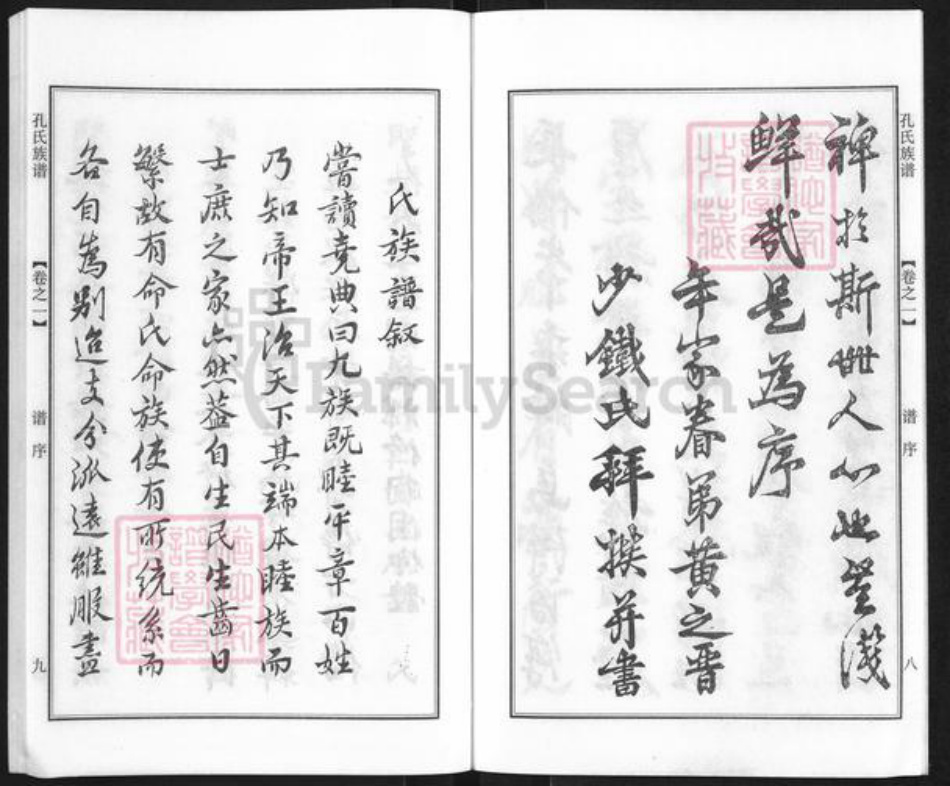 孔氏族谱
【卷之一】
谱序
八
裨於斯世人心此豈淺
鲜哉是為序
年家眷弟黄之晋
少鐵氏拜撰并書
氏族譜叙
嘗讀堯典曰九族既睦平章百姓
乃知帝王治天下其端本睦族而
士庶之家亦然葢自生民生齒日
繁故有命氏命族使有所統系而
各自為别迨支分派遠雖服盡
孔氏族谱
【卷之一】
谱序
九
FamilySearch